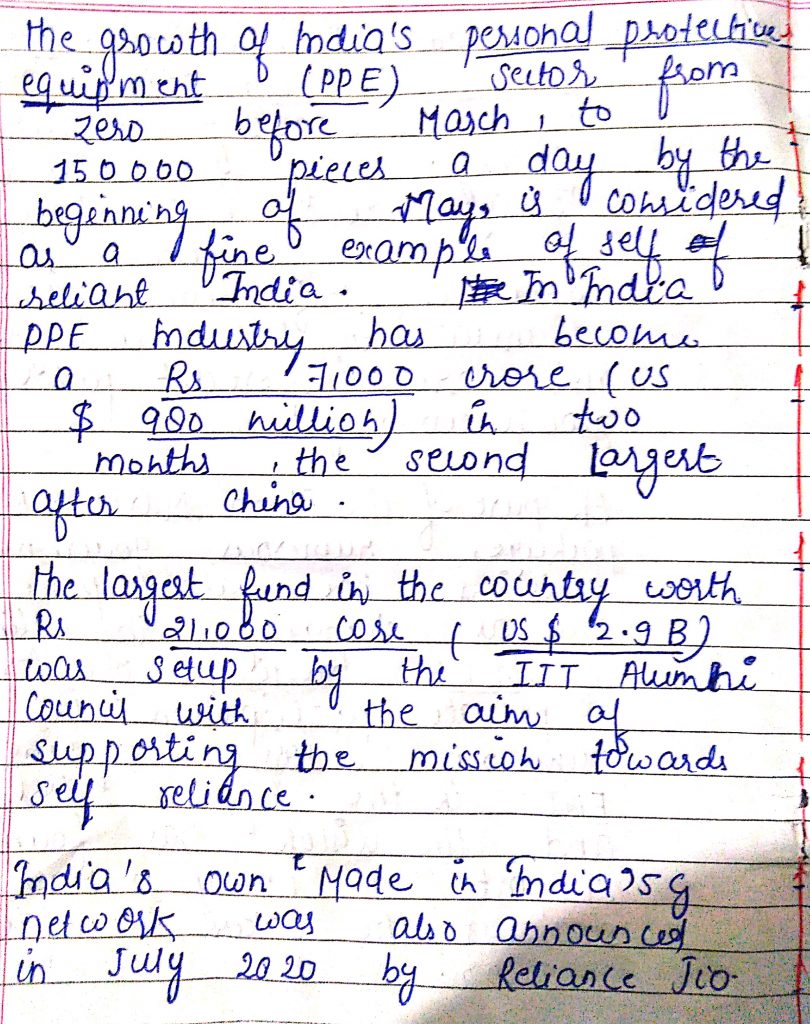 The growth of India's personal protective
equipment (PPE) sector from
zero before March, to
150000 pieces a day by the
beginning of May, is considered
as a fine example of self
reliant India. In India
PPE Industry has become
a Rs 7,000 crore (US
$ 980 million) in two
months, the second largest
after China.
The largest fund in the country worth
Rs 21,000 core (US $ 2.9 B)
was setup by the IIT Alumni
Council with the aim of
supporting the mission towards
self reliance.
India's own "Made in India" 5G
network was also announced
in July 2020 by Reliance Jio.